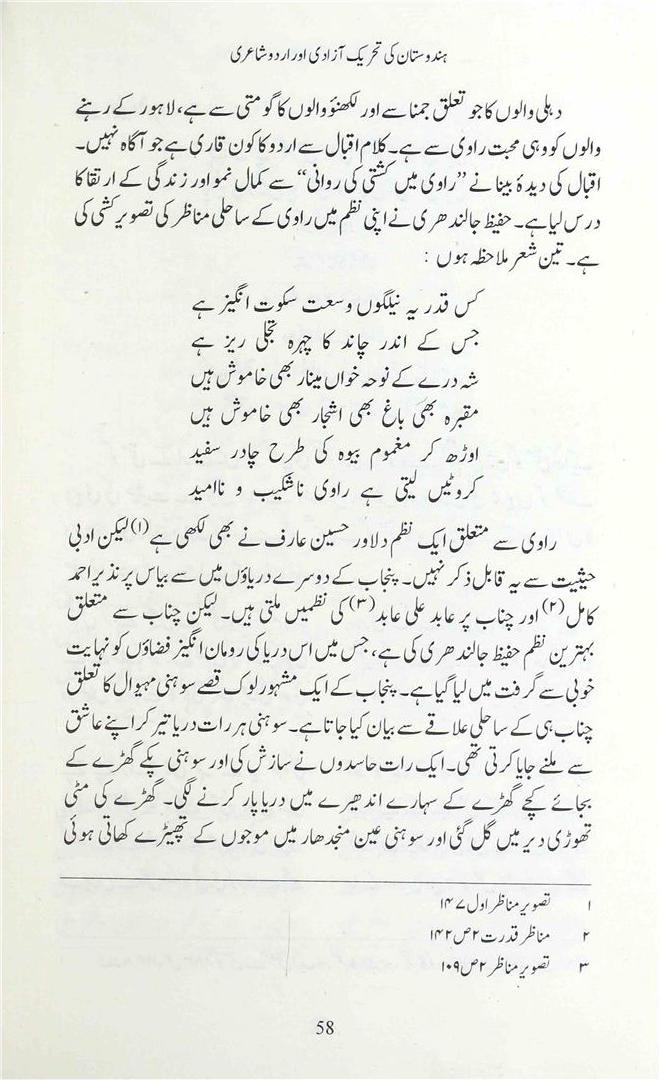 ہندوستان کی تحریک آزادی اور اردو شاعری
دہلی والوں کا جو تعلق جمنا سے اور لکھنؤ والوں کا گومتی سے ہے، لاہور کے رہنے
والوں کو وہی محبت راوی سے ہے۔ کلام اقبال سے اردو کا کون قاری ہے جو آگاہ نہیں۔
اقبال کی دیدۂ بینا نے ”راوی میں کشتی کی روانی“ سے کمال نمو اور زندگی کے ارتقا کا
درس لیا ہے۔ حفیظ جالندھری نے اپنی نظم میں راوی کے ساحلی مناظر کی تصویر کشی کی
ہے۔ تین شعر ملاحظہ ہوں :
کس قدر یہ نیلگوں وسعت سکوت انگیز ہے
جس کے اندر چاند کا چہرہ تجلی ریز ہے
شہ درے کے نوحہ خواں مینار بھی خاموش ہیں
مقبرہ بھی باغ بھی اشجار بھی خاموش ہیں
اوڑھ کر مغموم بیوہ کی طرح چادر سفید
کروٹیں لیتی ہے راوی ناشکیب و ناامید
راوی سے متعلق ایک نظم دلاور حسین عارف نے بھی لکھی ہے(۱) لیکن ادبی
حیثیت سے یہ قابل ذکر نہیں۔ پنجاب کے دوسرے دریاؤں میں سے بیاس پر نذیر احمد
کامل(۲) اور چناب پر عابد علی عابد(۳) کی نظمیں ملتی ہیں۔ لیکن چناب سے متعلق
بہترین نظم حفیظ جالندھری کی ہے، جس میں اس دریا کی رومان انگیز فضاؤں کو نہایت
خوبی سے گرفت میں لیا گیا ہے۔ پنجاب کے ایک مشہور لوک قصے سوہنی مہیوال کا تعلق
چناب ہی کے ساحلی علاقے سے بیان کیا جاتا ہے۔ سوہنی ہر رات دریا تیر کر اپنے عاشق
سے ملنے جایا کرتی تھی۔ ایک رات حاسدوں نے سازش کی اور سوہنی پکے گھڑے کے
بجائے کچے گھڑے کے سہارے اندھیرے میں دریا پار کرنے لگی۔ گھڑے کی مٹی
تھوڑی دیر میں گل گئی اور سوہنی عین منجدھار میں موجوں کے تھپیڑے کھاتی ہوئی
۱ تصویر مناظر اول ۱۴۷
۲ مناظر قدرت ۲ ص ۱۴۲
۳ تصویر مناظر ۲ ص ۱۰۹
58